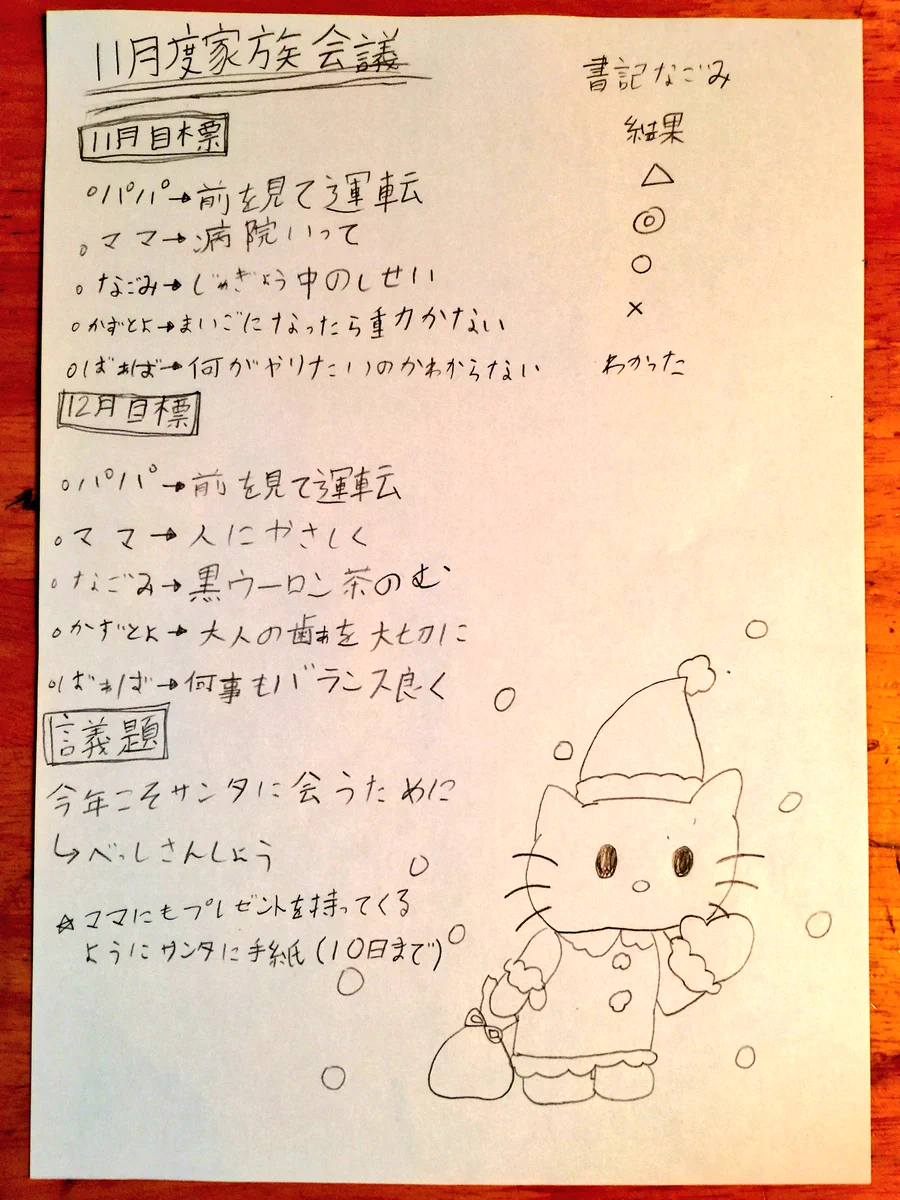 11月度家族会議
書記なごみ
11月目標
結果
○パパ→前を見て運転 △
○ママ→病院いって ◎
○なごみ→じゅぎょう中のしせい ○
○かずとよ→まいごになったら重力かない ×
○ばぁば→何がやりたいのかわからない わかった
12月目標
○パパ→前を見て運転
○ママ→人にやさしく
○なごみ→黒ウーロン茶のむ
○かずとよ→大人の歯を大切に
○ばぁば→何事もバランス良く
議題
今年こそサンタに会うために
↳べっしさんしょう
☆ママにもプレゼントを持ってくる
ようにサンタに手紙(10日まで)